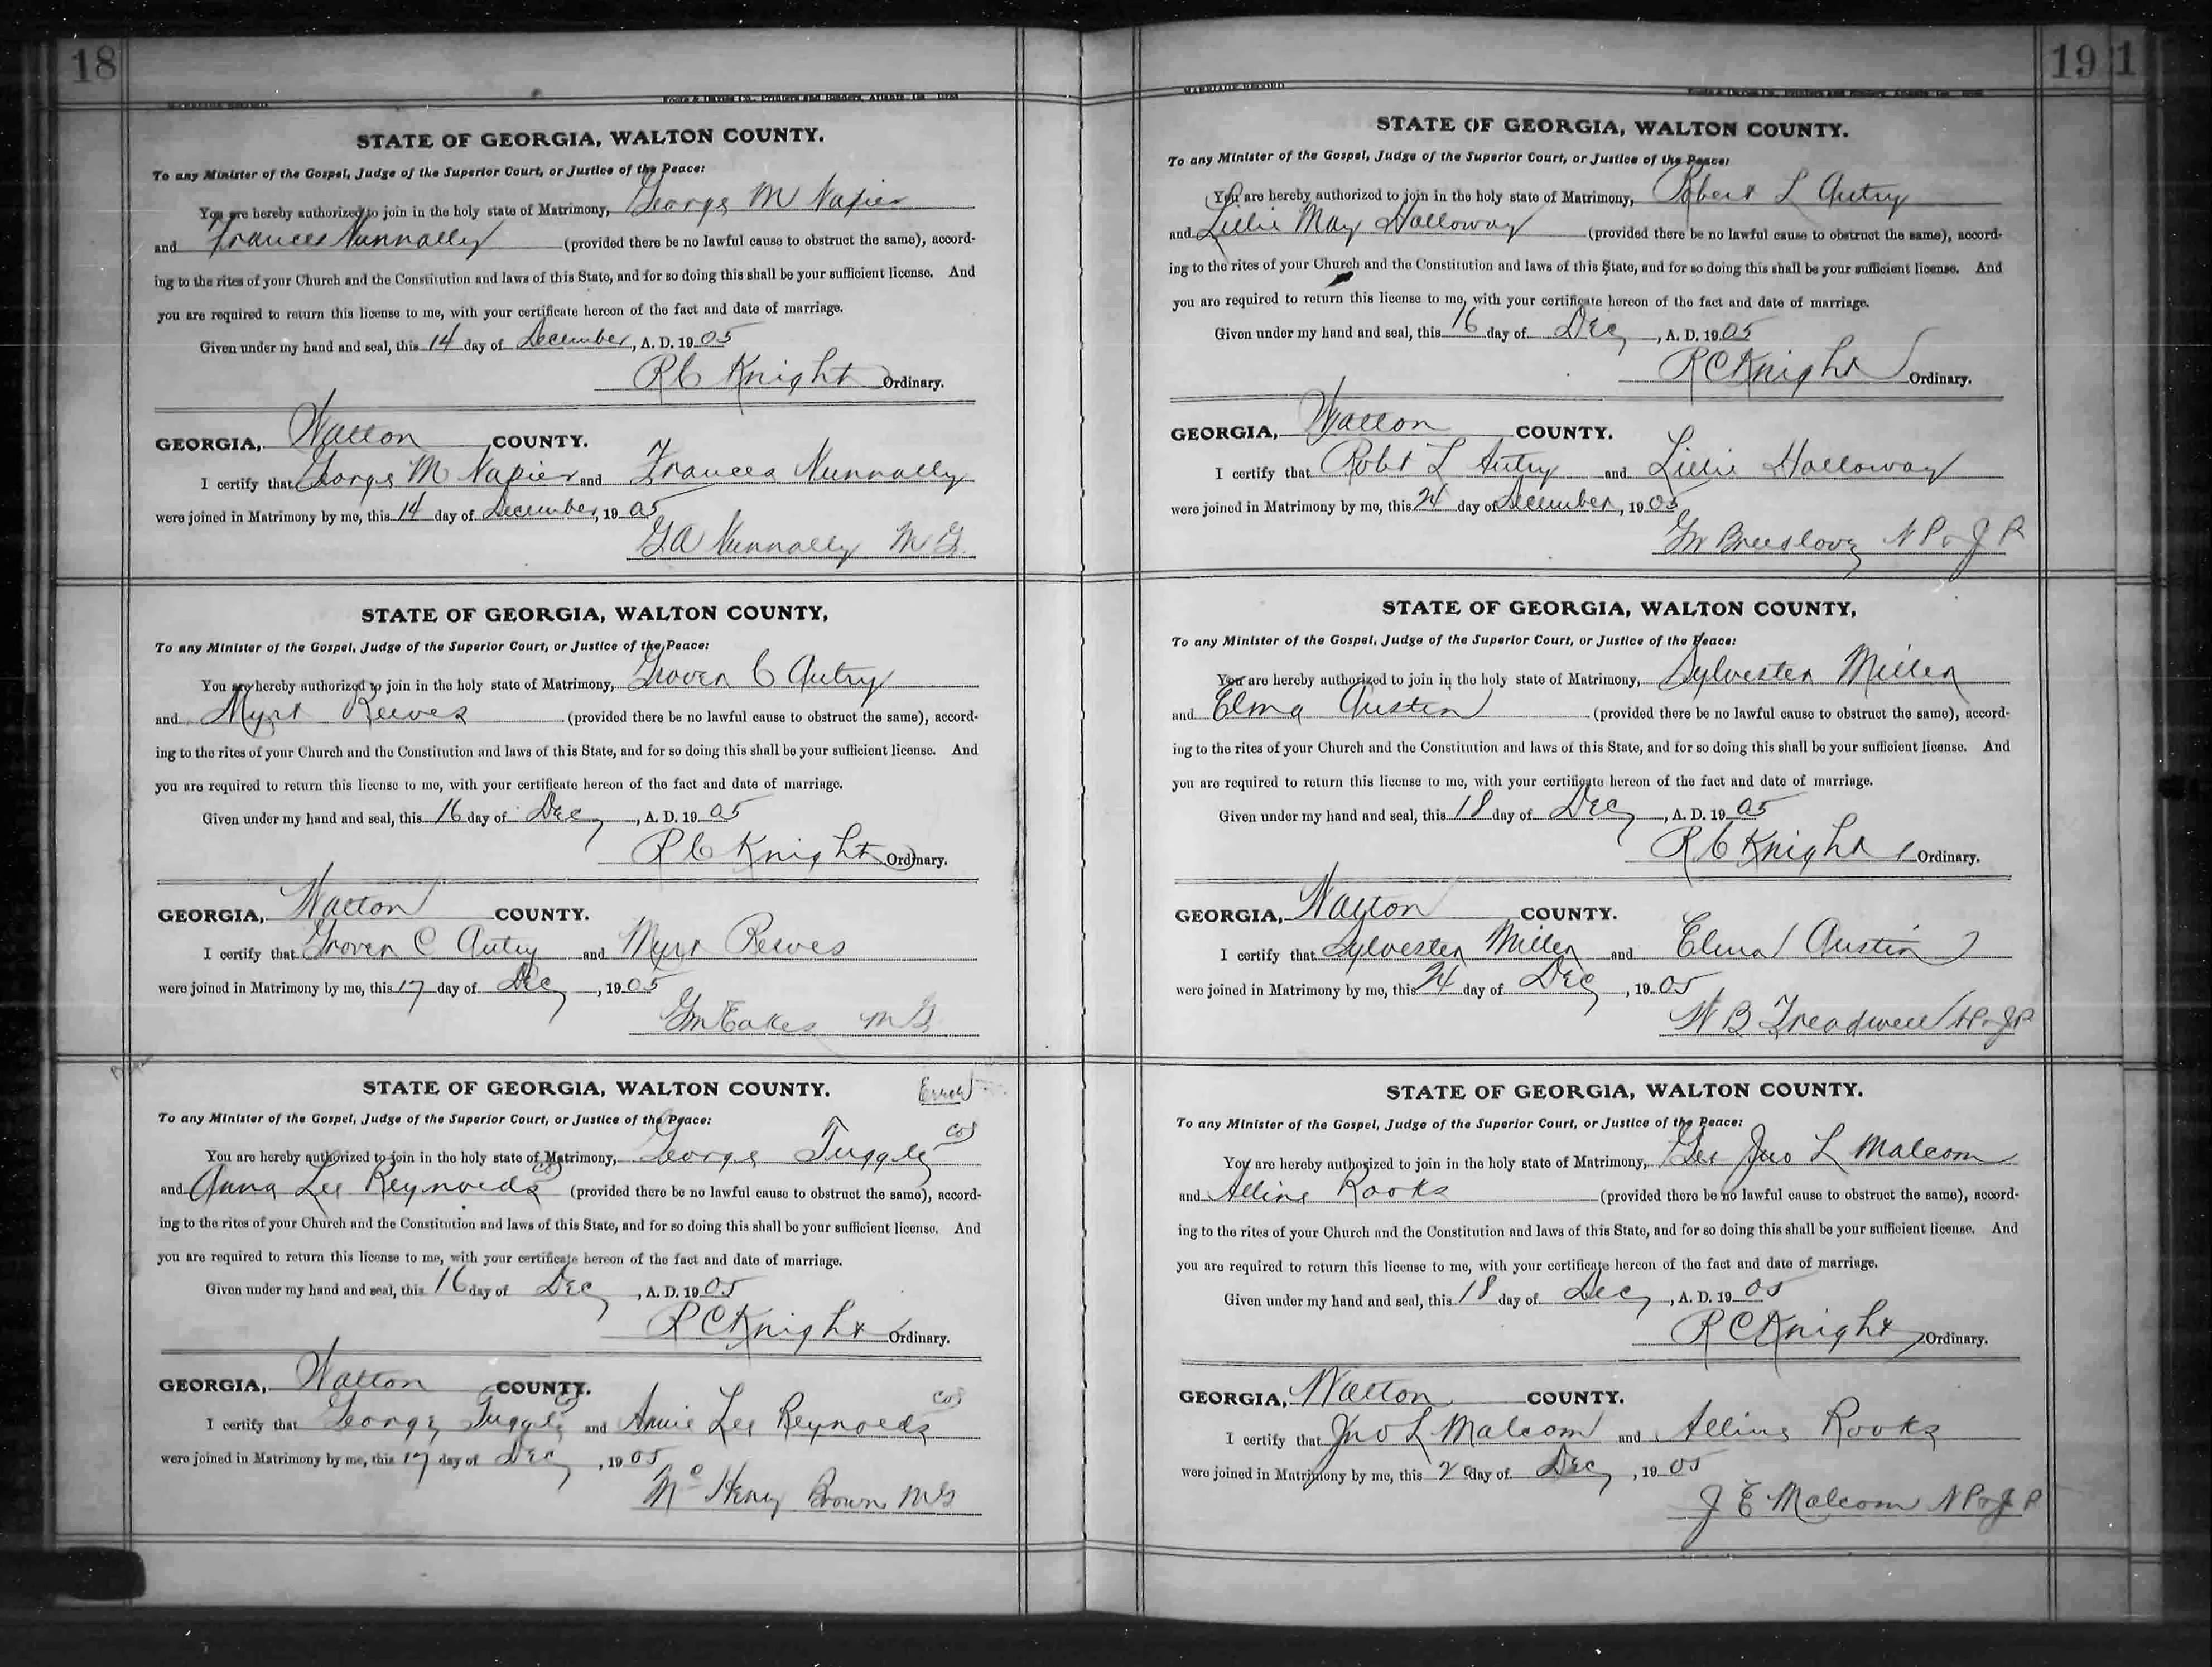 18
MARRIAGE RECORD
Foote & Davies Co., Printers and Binders, Atlanta, Ga.
STATE OF GEORGIA, WALTON COUNTY.
To any Minister of the Gospel, Judge of the Superior Court, or Justice of the Peace:
You are hereby authorized to join in the holy state of Matrimony, George M Napier
and Frances Nunnally (provided there be no lawful cause to obstruct the same), accord-
ing to the rites of your Church and the Constitution and laws of this State, and for so doing this shall be your sufficient license. And
you are required to return this license to me, with your certificate hereon of the fact and date of marriage.
Given under my hand and seal, this 14 day of December, A. D. 1905
R C Knight Ordinary.
GEORGIA, Walton COUNTY.
I certify that George M Napier and Frances Nunnally
were joined in Matrimony by me, this 14 day of December, 1905
G A Nunnally M G
STATE OF GEORGIA, WALTON COUNTY,
To any Minister of the Gospel, Judge of the Superior Court, or Justice of the Peace:
You are hereby authorized to join in the holy state of Matrimony, Grover C Autry
and Myrt Reeves (provided there be no lawful cause to obstruct the same), accord-
ing to the rites of your Church and the Constitution and laws of this State, and for so doing this shall be your sufficient license. And
you are required to return this license to me, with your certificate hereon of the fact and date of marriage.
Given under my hand and seal, this 16 day of Dec, A. D. 1905
R C Knight Ordinary.
GEORGIA, Walton COUNTY.
I certify that Grover C Autry and Myrt Reeves
were joined in Matrimony by me, this 17 day of Dec, 1905
G M Eakes M G
STATE OF GEORGIA, WALTON COUNTY. Error
To any Minister of the Gospel, Judge of the Superior Court, or Justice of the Peace:
You are hereby authorized to join in the holy state of Matrimony, George Tuggle col
and Anna Lee Reynolds col (provided there be no lawful cause to obstruct the same), accord-
ing to the rites of your Church and the Constitution and laws of this State, and for so doing this shall be your sufficient license. And
you are required to return this license to me, with your certificate hereon of the fact and date of marriage.
Given under my hand and seal, this 16 day of Dec, A. D. 1905
R C Knight Ordinary.
GEORGIA, Walton COUNTY.
I certify that George Tuggle col and Annie Lee Reynolds col
were joined in Matrimony by me, this 17 day of Dec, 1905
Mc Henry Brown M G
19 1
MARRIAGE RECORD
STATE OF GEORGIA, WALTON COUNTY.
To any Minister of the Gospel, Judge of the Superior Court, or Justice of the Peace:
You are hereby authorized to join in the holy state of Matrimony, Robert L Autry
and Lillie May Holloway (provided there be no lawful cause to obstruct the same), accord-
ing to the rites of your Church and the Constitution and laws of this State, and for so doing this shall be your sufficient license. And
you are required to return this license to me, with your certificate hereon of the fact and date of marriage.
Given under my hand and seal, this 16 day of Dec, A. D. 1905
R C Knight Ordinary.
GEORGIA, Walton COUNTY.
I certify that Robt L Autry and Lillie Holloway
were joined in Matrimony by me, this 24 day of December, 1905
Breedlove N P & J P
STATE OF GEORGIA, WALTON COUNTY,
To any Minister of the Gospel, Judge of the Superior Court, or Justice of the Peace:
You are hereby authorized to join in the holy state of Matrimony, Sylvester Miller
and Elma Austin (provided there be no lawful cause to obstruct the same), accord-
ing to the rites of your Church and the Constitution and laws of this State, and for so doing this shall be your sufficient license. And
you are required to return this license to me, with your certificate hereon of the fact and date of marriage.
Given under my hand and seal, this 18 day of Dec, A. D. 1905
R C Knight Ordinary.
GEORGIA, Walton COUNTY.
I certify that Sylvester Miller and Elma Austin
were joined in Matrimony by me, this 24 day of Dec, 1905
W B Treadwell N P & J P
STATE OF GEORGIA, WALTON COUNTY.
To any Minister of the Gospel, Judge of the Superior Court, or Justice of the Peace:
You are hereby authorized to join in the holy state of Matrimony, Jno L Malcom
and Alline Rooks (provided there be no lawful cause to obstruct the same), accord-
ing to the rites of your Church and the Constitution and laws of this State, and for so doing this shall be your sufficient license. And
you are required to return this license to me, with your certificate hereon of the fact and date of marriage.
Given under my hand and seal, this 18 day of Dec, A. D. 1905
R C Knight Ordinary.
GEORGIA, Walton COUNTY.
I certify that Jno L Malcom and Alline Rooks
were joined in Matrimony by me, this 20 day of Dec, 1905
J E Malcom N P & J P